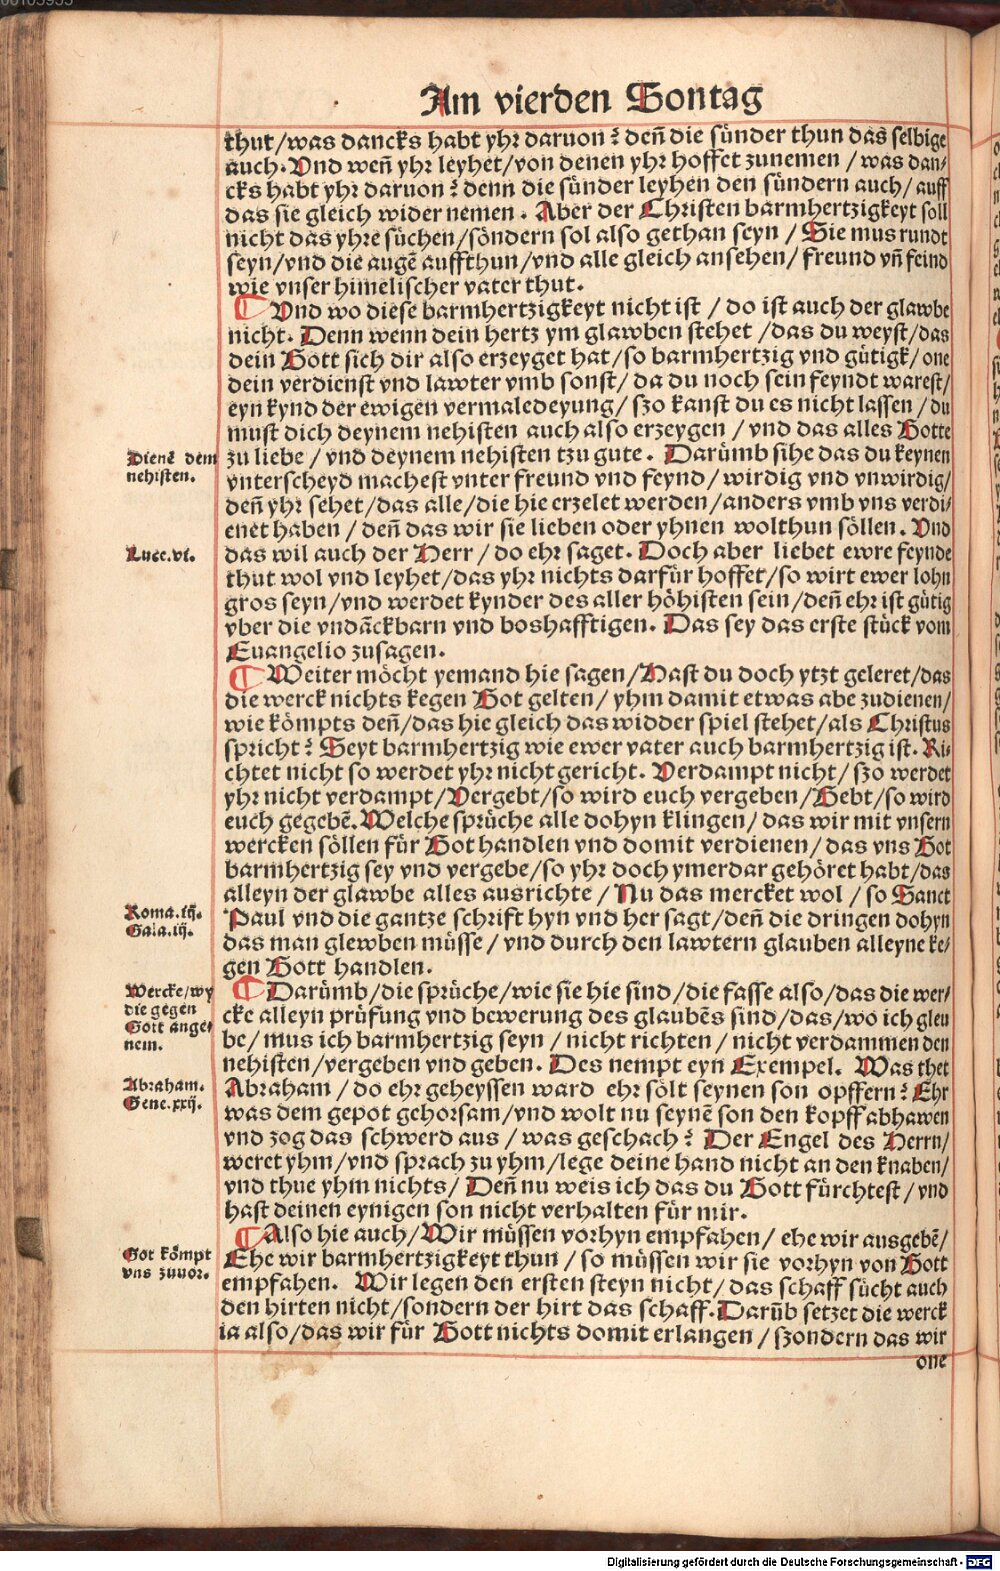 Am vierden Sontag
thut/was dancks habt yhr daruon? deñ die sünder thun das selbige
auch. Vnd weñ yhr leyhet/von denen yhr hoffet zunemen/was dan-
cks habt yhr daruon? denn die sünder leyhen den sündern auch/auff
das sie gleich wider nemen. Aber der Christen barmhertzigkeyt soll
nicht das yhre süchen/söndern sol also gethan seyn/Sie mus rundt
seyn/vnd die augē auffthun/vnd alle gleich ansehen/freund vñ feind
wie vnser himelischer vater thut.
Vnd wo diese barmhertzigkeyt nicht ist/do ist auch der glawbe
nicht. Denn wenn dein hertz ym glawben stehet/das du weyst/das
dein Gott sich dir also erzeyget hat/so barmhertzig vnd gütigk/one
dein verdienst vnd lawter vmb sonst/da du noch sein feyndt warest/
eyn kynd der ewigen vermaledeyung/szo kanst du es nicht lassen/du
must dich deynem nehisten auch also erzeygen/vnd das alles Gotte
Dienē dem
nehisten.
zu liebe/vnd deynem nehisten tzu gute. Darümb sihe das du keynen
vnterscheyd machest vnter freund vnd feynd/wirdig vnd vnwirdig/
deñ yhr sehet/das alle/die hie erzelet werden/anders vmb vns verdi-
enet haben/deñ das wir sie lieben oder yhnen wolthun söllen. Vnd
Luce.vi.
das wil auch der Herr/do ehr saget. Doch aber liebet ewre feynde
thut wol vnd leyhet/das yhr nichts darfür hoffet/so wirt ewer lohn
gros seyn/vnd werdet kynder des aller höhisten sein/deñ ehr ist gütig
vber die vndāckbarn vnd boshafftigen. Das sey das erste stück vom
Euangelio zusagen.
Weiter möcht yemand hie sagen/Hast du doch ytzt geleret/das
die werck nichts kegen Got gelten/yhm damit etwas abe zudienen/
wie kömpts deñ/das hie gleich das widder spiel stehet/als Christus
spricht? Seyt barmhertzig wie ewer vater auch barmhertzig ist. Ri-
chtet nicht so werdet yhr nicht gericht. Verdampt nicht/szo werdet
yhr nicht verdampt/Vergebt/so wird euch vergeben/Gebt/so wird
euch gegebē. Welche sprüche alle dohyn klingen/das wir mit vnsern
wercken söllen für Got handlen vnd domit verdienen/das vns Got
barmhertzig sey vnd vergebe/so yhr doch ymerdar gehöret habt/das
alleyn der glawbe alles ausrichte/Nu das mercket wol/so Sanct
Roma.iij.
Gala.iij.
Paul vnd die gantze schrift hyn vnd her sagt/deñ die dringen dohyn
das man glewben müsse/vnd durch den lawtern glauben alleyne ke-
gen Gott handlen.
Wercke/wy
die gegen
Gott ange-
nem.
Darümb/die sprüche/wie sie hie sind/die fasse also/das die wer-
cke alleyn prüfung vnd bewerung des glaubēs sind/das/wo ich gleu
be/mus ich barmhertzig seyn/nicht richten/nicht verdammen den
nehisten/vergeben vnd geben. Des nempt eyn Exempel. Was thet
Abraham.
Gene.xxij.
Abraham/do ehr geheyssen ward ehr sölt seynen son opffern? Ehr
was dem gepot gehorsam/vnd wolt nu seynē son den kopff abhawen
vnd zog das schwerd aus/was geschach? Der Engel des Herrn/
weret yhm/vnd sprach zu yhm/lege deine hand nicht an den knaben/
vnd thue yhm nichts/Deñ nu weis ich das du Gott fürchtest/vnd
hast deinen eynigen son nicht verhalten für mir.
Also hie auch/Wir müssen vorhyn empfahen/ehe wir ausgebē/
Got kömpt
vns zuuor.
Ehe wir barmhertzigkeyt thun/so müssen wir sie vorhyn von Gott
empfahen. Wir legen den ersten steyn nicht/das schaff sücht auch
den hirten nicht/sondern der hirt das schaff. Darūb setzet die werck
ia also/das wir für Gott nichts domit erlangen/szondern das wir
one
Digitalisierung gefördert durch die Deutsche Forschungsgemeinschaft - DFG